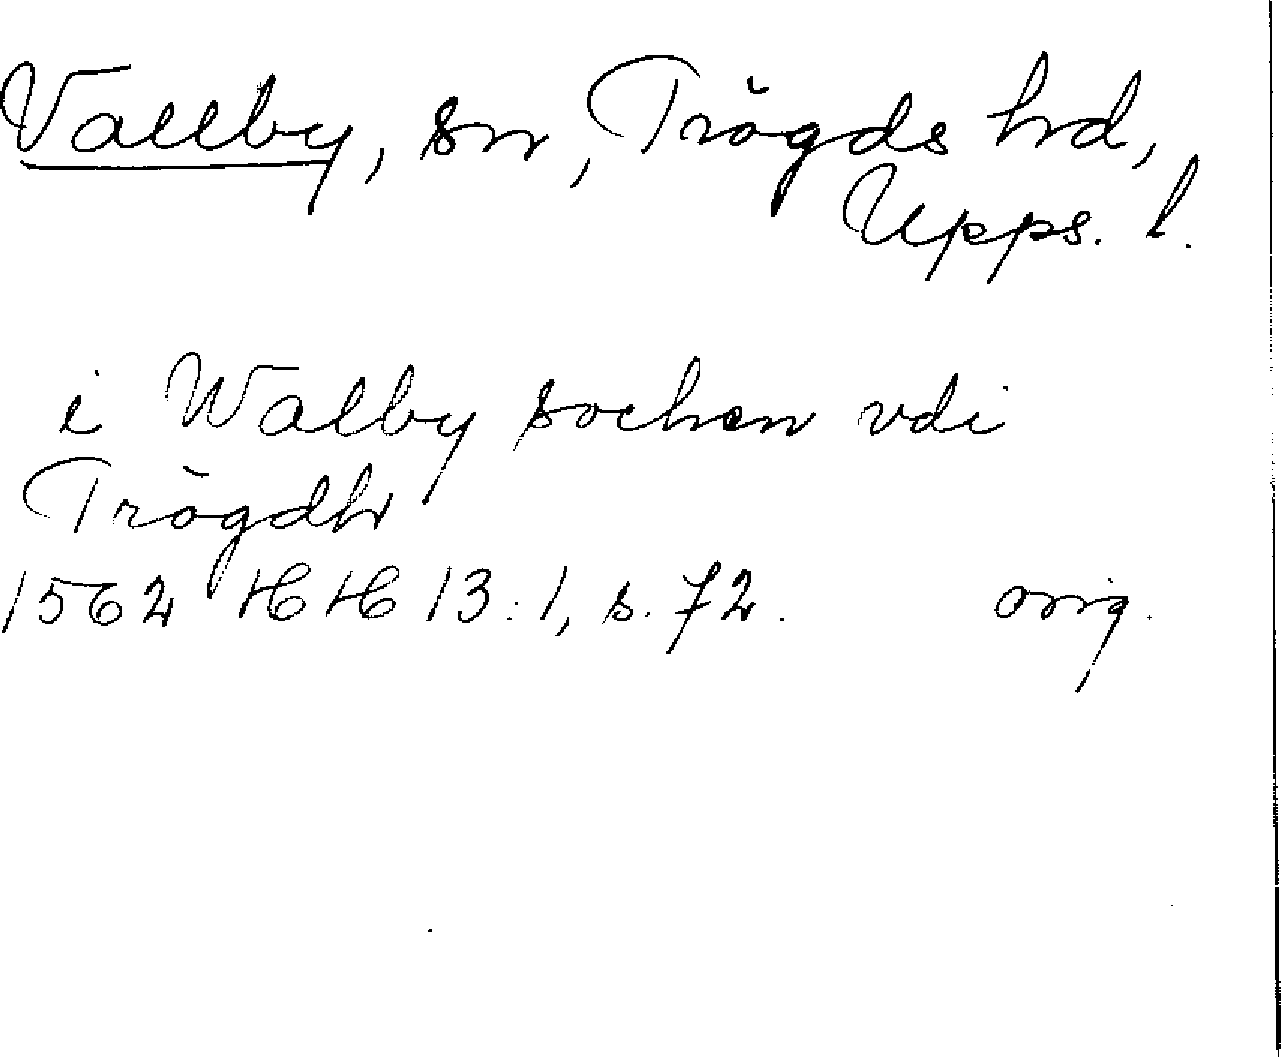 Vallby, sn, Trögds hd,
Upps. l.
i Walby sochen vdi
Trögdh
1562 HH 13:1, s. 72. orig.